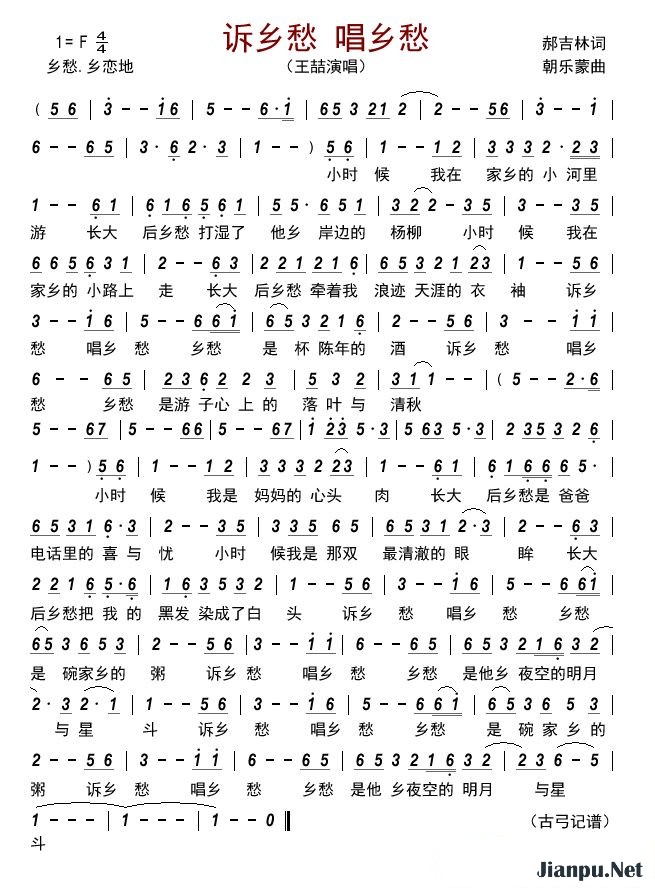 诉乡愁 唱乡愁
1= F 4/4
郝吉林词
乡愁.乡恋地
（王喆演唱）
朝乐蒙曲
( 5 6 | 3 - - 1 6 | 5 - - 6 · 1 | 6 5 3 2 1 2 | 2 - - 5 6 | 3 - - 1 |
6 - - 6 5 | 3 · 6 2 · 3 | 1 - - ) 5 6 | 1 - - 1 2 | 3 3 3 2 · 2 3 |
小时 候 我在 家乡的 小 河里
1 - - 6 1 | 6 1 6 5 6 1 | 5 5 · 6 5 1 | 3 2 2 - 3 5 | 3 - - 3 5 |
游 长大 后乡愁 打湿了 他乡 岸边的 杨柳 小时 候 我在
6 6 5 6 3 1 | 2 - - 6 3 | 2 2 1 2 1 6 | 6 5 3 2 1 2 3 | 1 - - 3 5 |
家乡的 小路上 走 长大 后乡愁 牵着我 浪迹 天涯的 衣 袖 诉乡
3 - - 1 6 | 5 - - 6 6 1 | 6 5 3 2 1 6 | 2 - - 5 6 | 3 - - 1 1 |
愁 唱乡 愁 乡愁 是 杯 陈年的 酒 诉乡 愁 唱乡
6 - - 6 5 | 2 3 6 2 2 3 | 5 3 2 | 3 1 1 - - | ( 5 - - 2 · 6 |
愁 乡愁 是游 子心 上 的 落 叶 与 清秋
5 - - 6 7 | 5 - - 6 6 | 5 - - 6 7 | 1 2 3 5 · 3 | 5 6 3 5 · 3 | 2 3 5 3 2 6 |
1 - - ) 5 6 | 1 - - 1 2 | 3 3 3 2 2 3 | 1 - - 6 1 | 6 1 6 6 6 5 · |
小时 候 我是 妈妈的 心头 肉 长大 后乡愁是 爸爸
6 5 3 1 6 · 3 | 2 - - 3 5 | 3 - - 3 5 | 6 6 5 3 1 2 · 3 | 2 - - 6 · |
电话里的 喜 与 忧 小时 候我是 那双 最清澈的 眼 眸 长大
2 2 1 6 5 · 6 | 1 6 3 5 3 2 | 1 - - 3 5 | 3 - - 1 6 | 5 - - 6 6 1 |
后乡愁把 我 的 黑发 染成了白 头 诉乡 愁 唱乡 愁 乡愁
6 5 3 6 5 3 | 2 - - 5 6 | 3 - - 1 1 | 6 - - 6 5 | 6 5 3 2 1 6 3 2 |
是 碗家乡的 粥 诉乡 愁 唱乡 愁 乡愁 是他乡 夜空的明月
2 · 3 2 · 1 | 2 - - 5 6 | 3 - - 1 6 | 5 - - 6 6 1 | 6 5 3 6 5 3 |
与星 斗 诉乡 愁 唱乡 愁 乡愁 是 碗 家 乡 的
2 - - 5 6 | 3 - - 1 1 | 6 - - 6 5 | 6 5 3 2 1 6 3 2 | 2 3 6 - 5 |
粥 诉乡 愁 唱乡 愁 乡愁 是他 乡夜空的 明月 与星
1 - - - | 1 - - - | 1 - - 0 ‖
（古弓记谱）
斗
Jianpu.Net